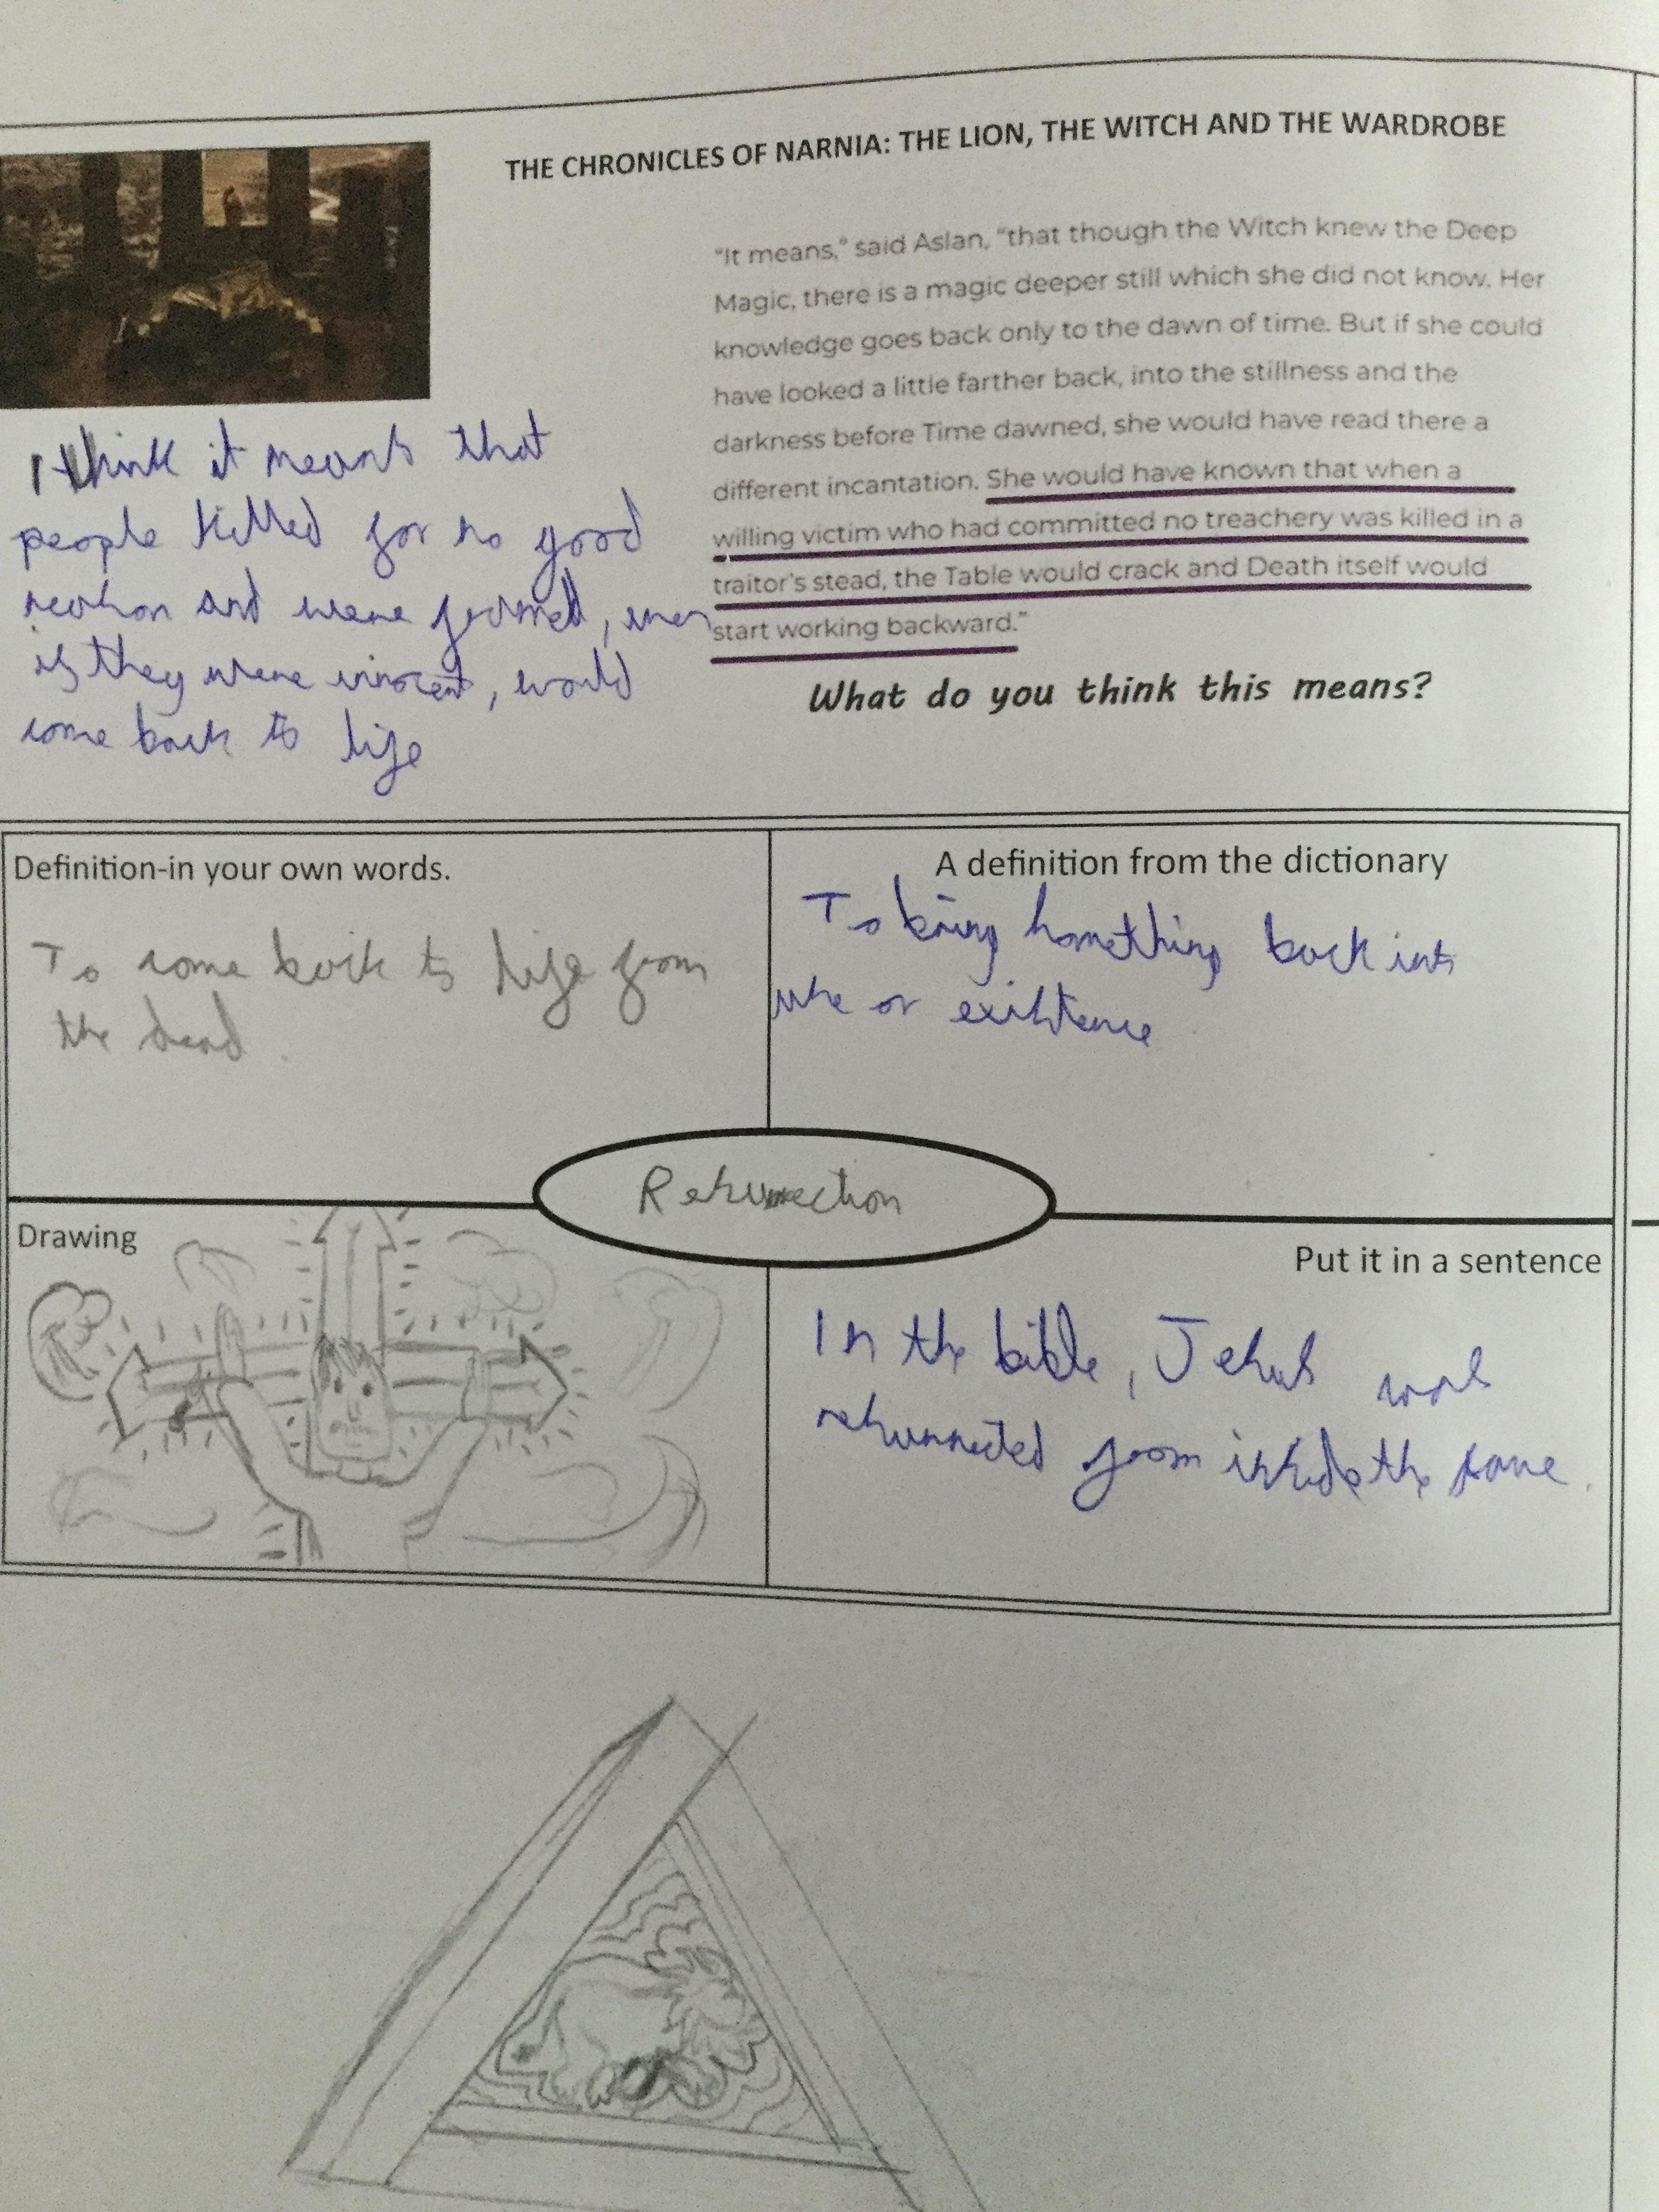 THE CHRONICLES OF NARNIA: THE LION, THE WITCH AND THE WARDROBE
"It means," said Aslan, "that though the Witch knew the Deep
Magic, there is a magic deeper still which she did not know. Her
knowledge goes back only to the dawn of time. But if she could
have looked a little farther back, into the stillness and the
darkness before Time dawned, she would have read there a
different incantation. She would have known that when a
willing victim who had committed no treachery was killed in a
traitor's stead, the Table would crack and Death itself would
start working backward."
What do you think this means?
I think it means that
people killed for no good
reason and were framed, even
if they were innocent, would
come back to life
Definition-in your own words.
To come back to life from
the dead.
A definition from the dictionary
To bring something back into
use or existence
Resurrection
Drawing
Put it in a sentence
In the bible, Jesus was
resurrected from inside the